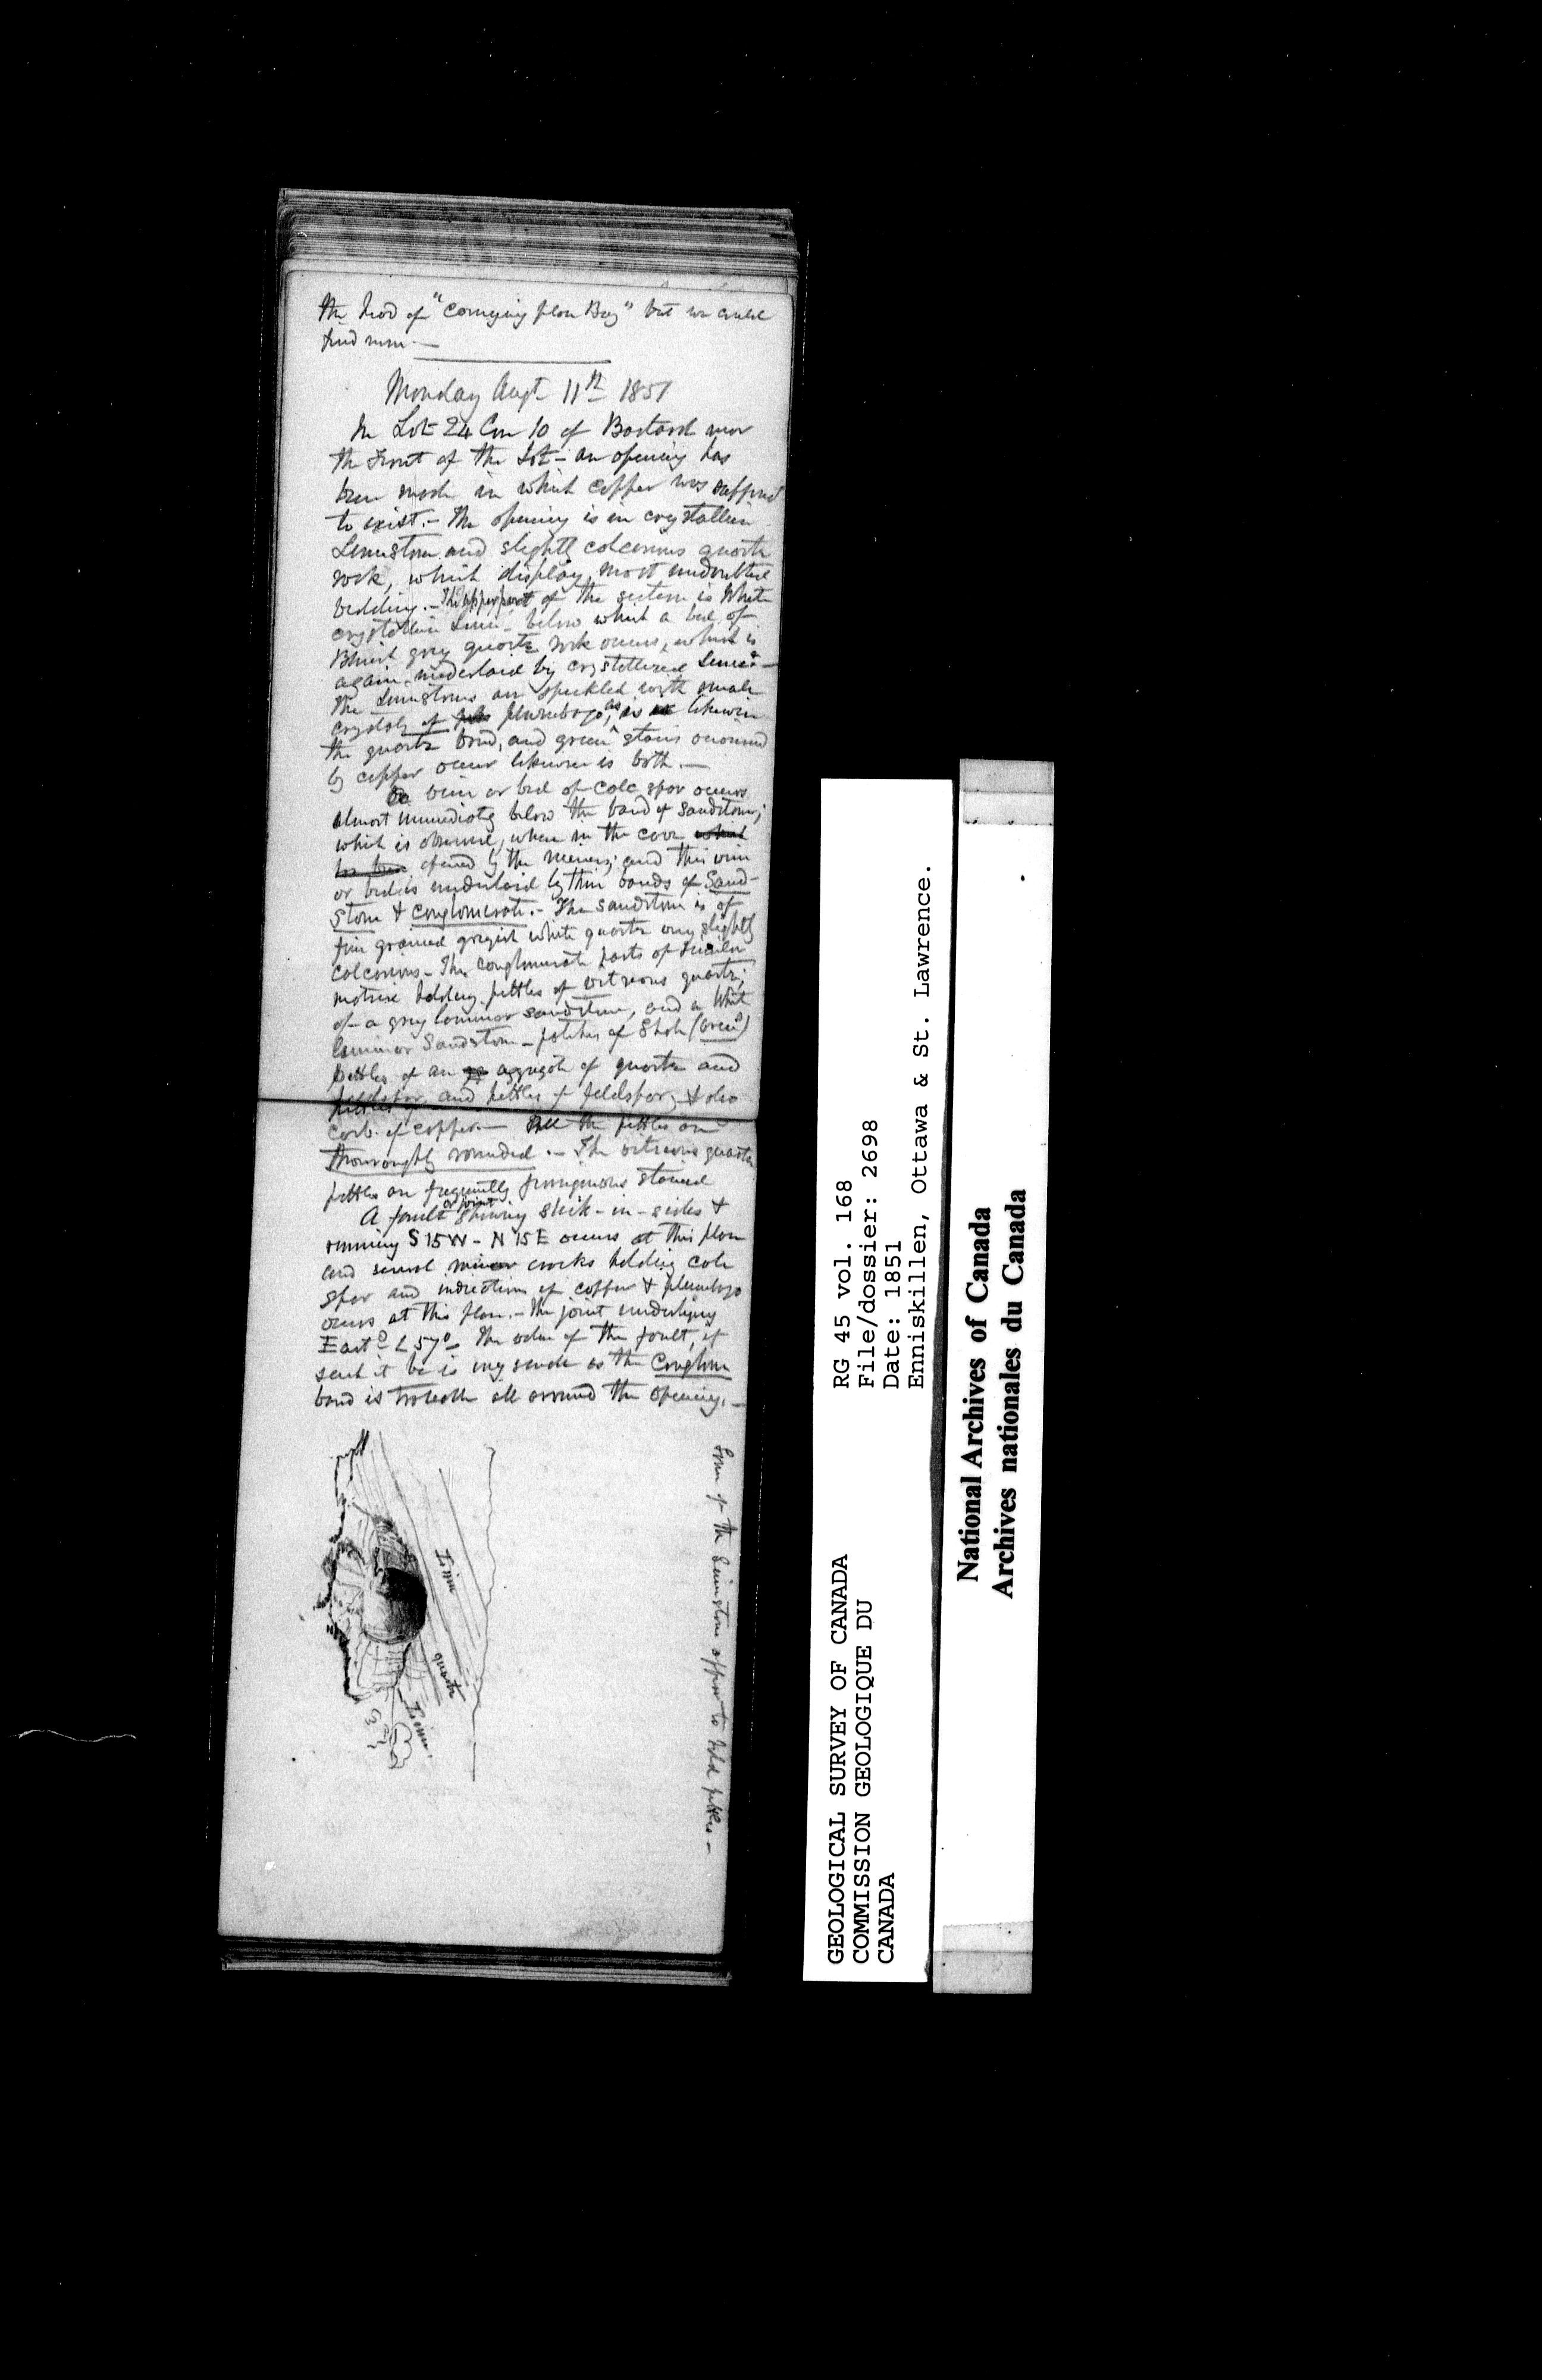 the head of "Carrying place Bay" but we could
find none —
Monday Augt 11th 1851
In Lot 24 Con 10 of Bastard near
the Front of the Lot – an opening has
been made in which copper was supposed
to exist. – The opening is in crystalline
Limestone and slightly calcareous quartz
rock, which display most undoubted
bedding. – The upper part of the section is White
crystalline Lime – below which a bed of
Bluish grey quartz rock occurs, which is
again underlaid by crystallized Lime –
The Limestones are speckled with small
crystals of plumbago, as is likewise
the quartz band, and green stains occasioned
by copper occur likewise in both. —
A vein or bed of Calc spar occurs
almost immediately below the band of sandstone,
which is observed, where in the cave which
has been opened by the miners; and this vein
or bed is underlaid by thin bands of Sand-
stone & conglomerate. – The sandstone is of
fine grained greyish white quartz very slightly
calcareous – The conglomerate parts of similar
matrix holding pebbles of vitreous quartz;
of a grey laminar sandstone, and a White
laminar Sandstone – patches of Shale (Green)
pebbles of an aggregate of quartz and
feldspar, and pebbles of feldspar, & also
carb. of copper. – All the pebbles are
thoroughly rounded. – The vitreous quartz
pebbles are frequently ferruginous stained
A fault or joint showing slick-in-sides &
running S 15 W – N 15 E occurs at this place
and several minor cracks holding calc
spar and indications of copper & plumbago
occurs at this place. – The joint underlying
East 0 < 57° – The value of the fault, if
such it be is very small as the Conglom
band is traceable all around the opening. –
Some of the Limestone appear to hold pebbles –
Lime
quartz
Lime.
RG 45 vol. 168
File/dossier: 2698
Date: 1851
Enniskillen, Ottawa & St. Lawrence.
GEOLOGICAL SURVEY OF CANADA
COMMISSION GEOLOGIQUE DU
CANADA
National Archives of Canada
Archives nationales du Canada